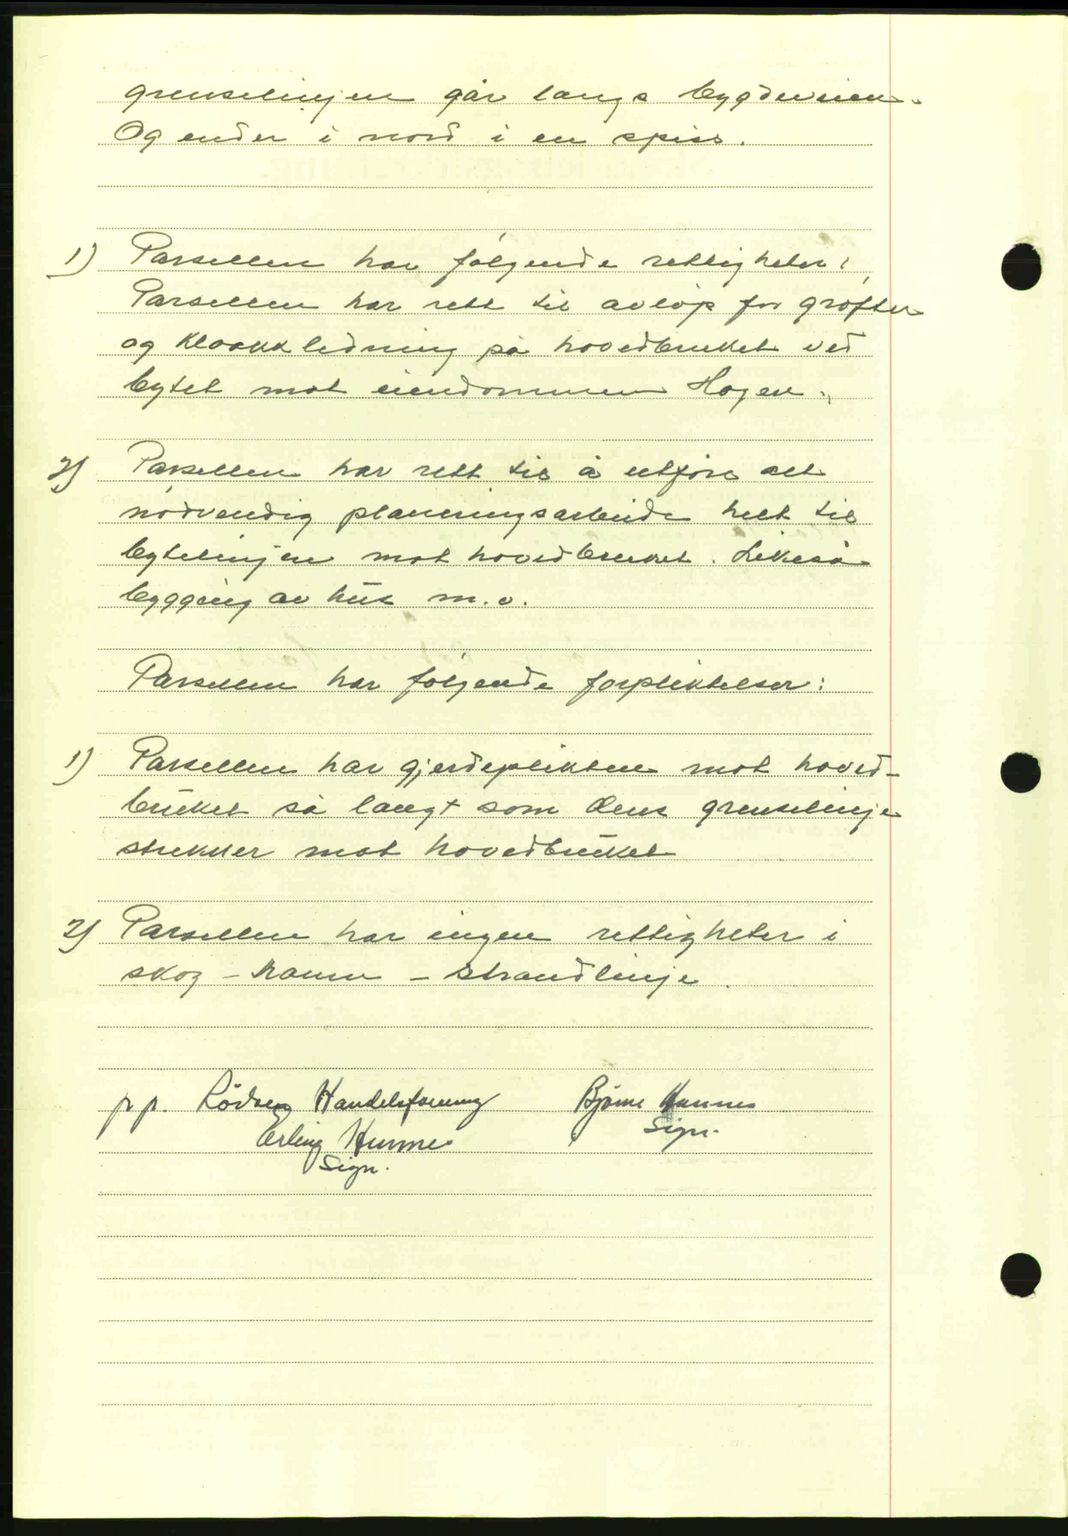 grenselinjen går langs bygdeveien.
Og ender i nord i en spiss.
1) Parsellen har følgende rettigheter:
Parsellen har rett til avløp for grøfter
og kloakkledning på hovedbruket ved
bytet mot eiendommen Hagen.
2) Parsellen har rett til å utføre alt
nødvendig planeringsarbeide helt til
bytelinjen mot hovedbruket. Likeså
bygging av hus m.v.
Parsellen har følgende forpliktelser:
1) Parsellen har gjerdeplikten mot hoved-
bruket så langt som dens grenselinje
strekker mot hovedbruket
2) Parsellen har ingen rettigheter i
skog - havn - strandlinje.
p.p. Rödven Handelsforening Bjarne Hunnes
Erling Hunnes Sign.
Sign.